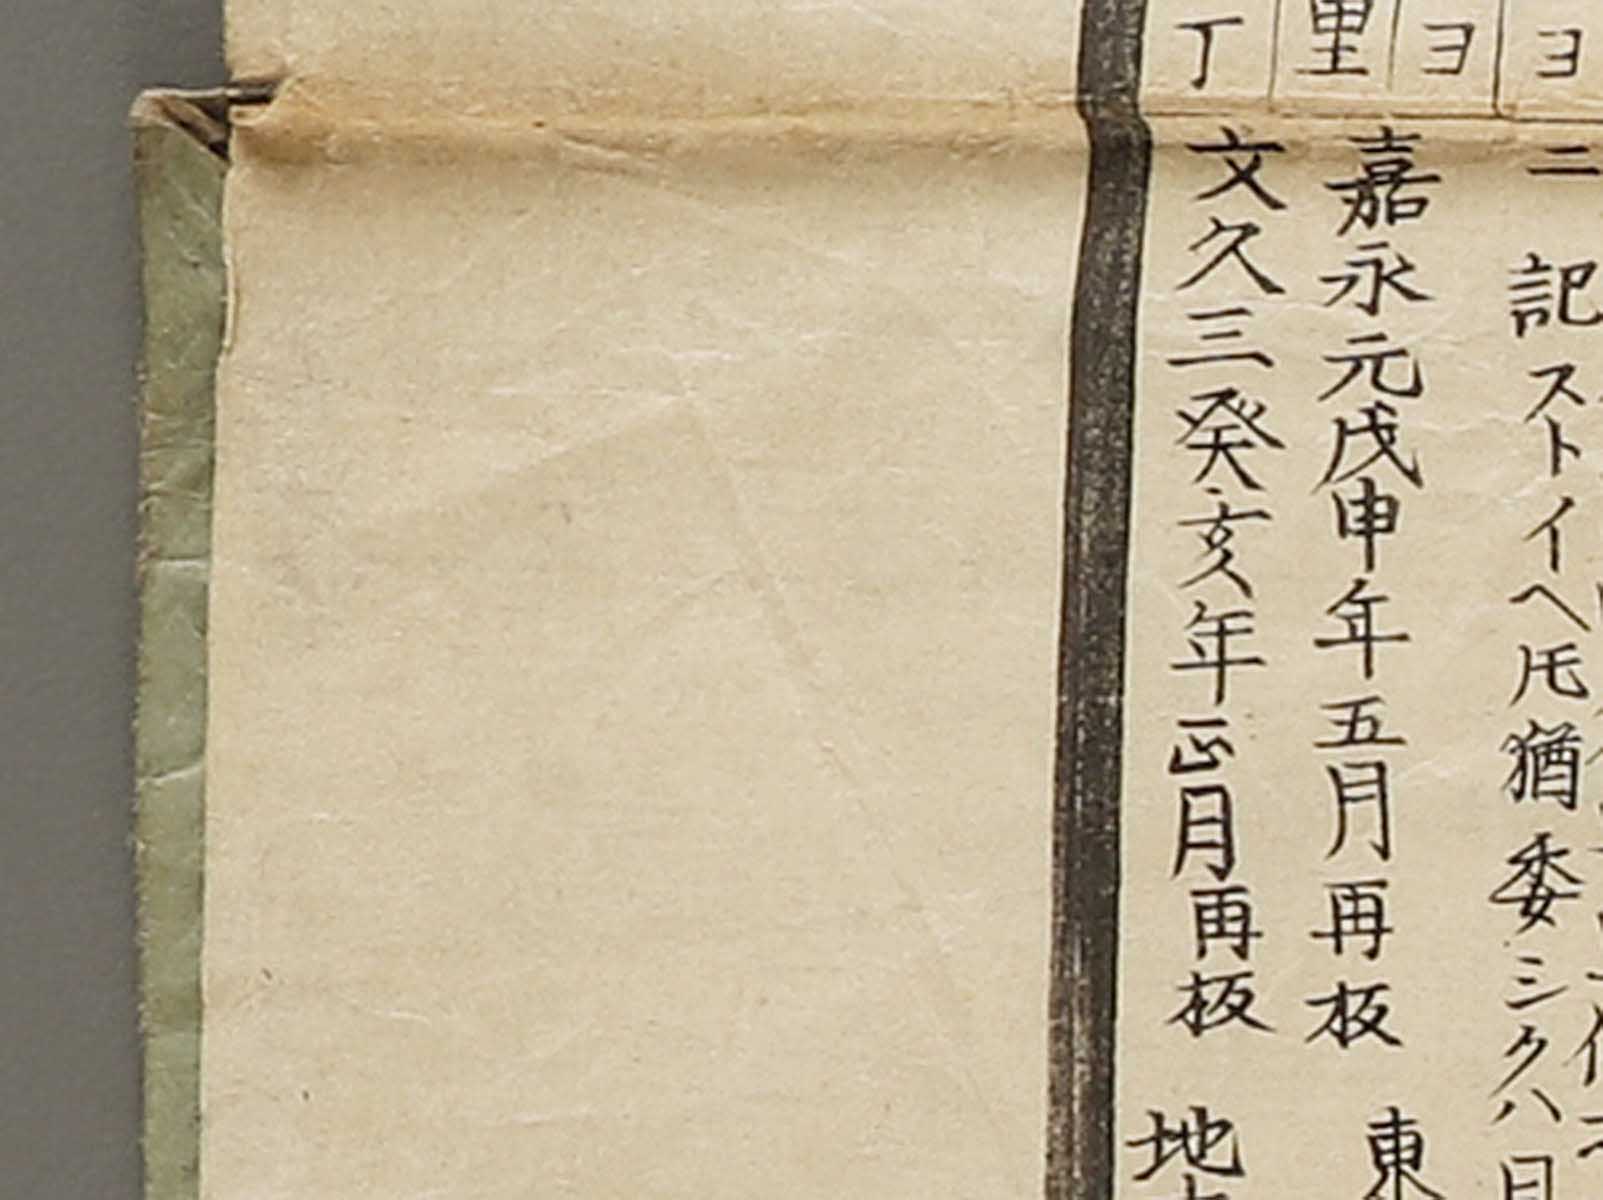 ヨ
ヨ
里
丁
ニ記ストイヘ𪜈猶委シクハ日
嘉永元戊申年五月再板 東
文久三癸亥年正月再板 地